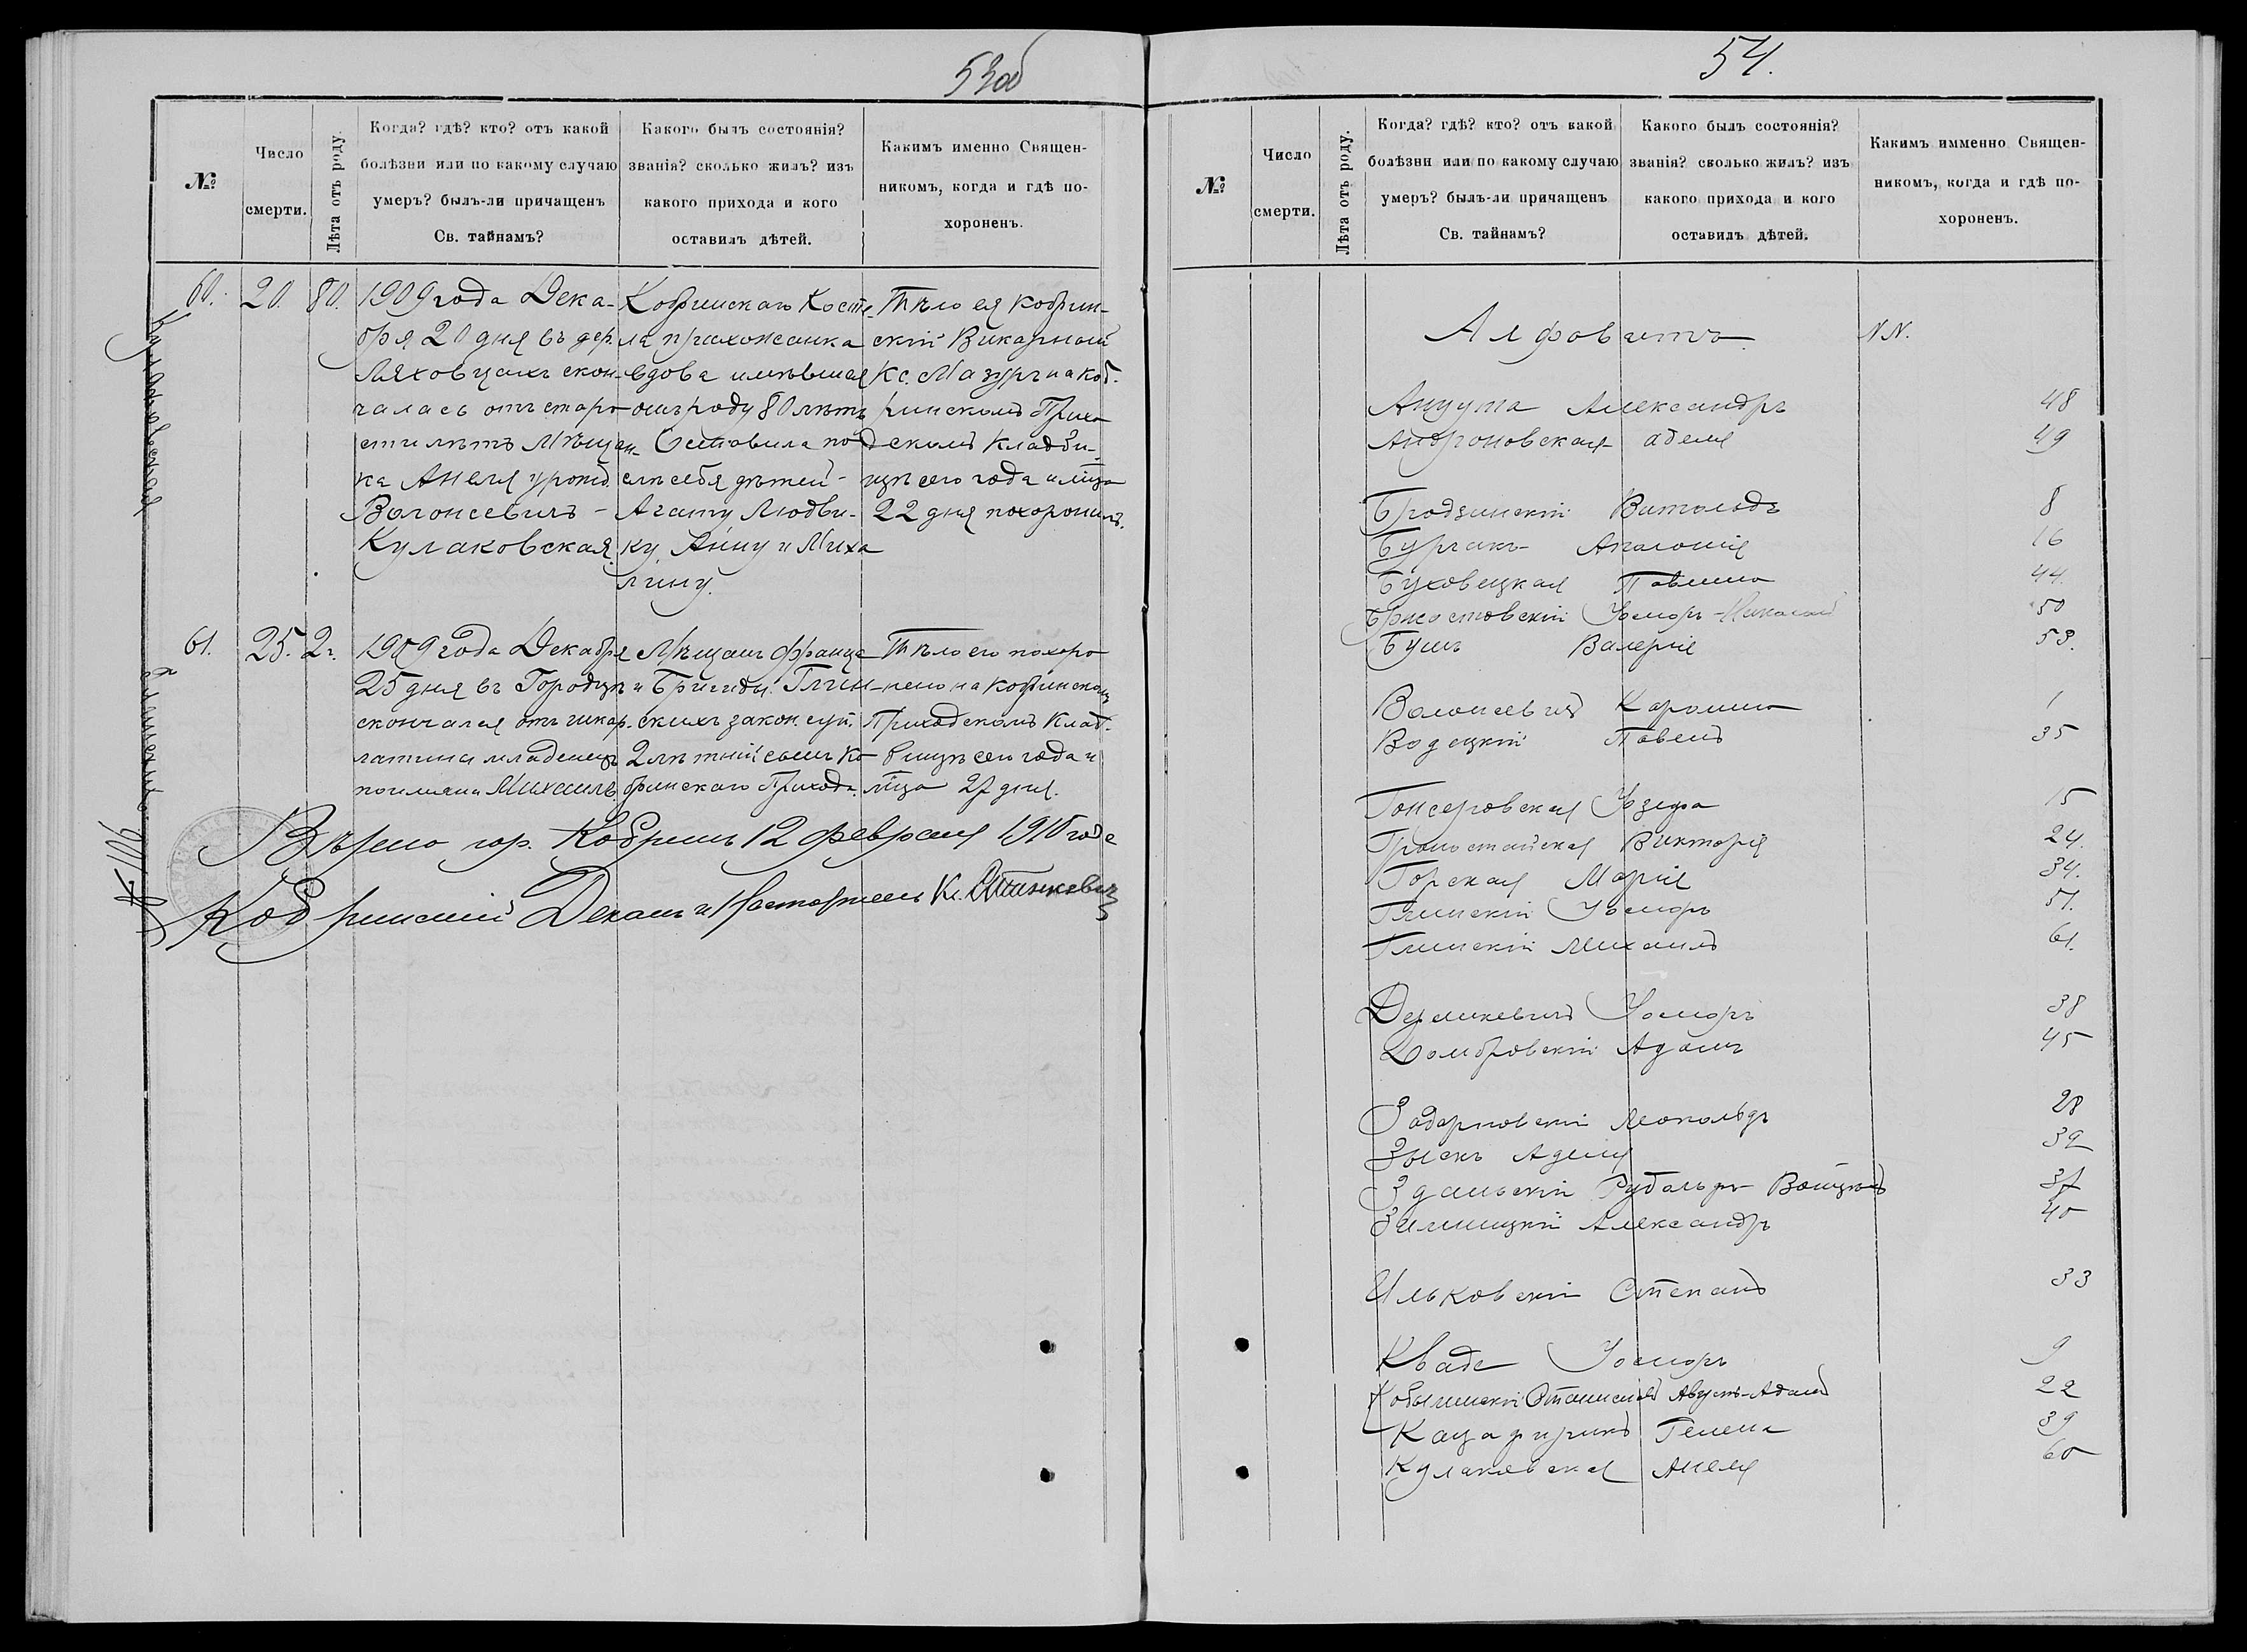 53об
№
Число
смерти.
Лѣта отъ роду.
Когда? гдѣ? кто? отъ какой
болѣзни или по какому случаю
умеръ? былъ-ли причащенъ
Св. тайнамъ?
Какого былъ состоянія?
званія? сколько жилъ? изъ
какого прихода и кого
оставилъ дѣтей.
Какимъ именно Священ-
никомъ, когда и гдѣ по-
хороненъ.
Кулаковская
60.
20.
80.
1909 года Дека-
бря 20 дня въ дер.
Ляховцахъ скон-
чалась отъ старо
сти лѣтъ Мѣщан-
ка Анеля урожд.
Волонсевичъ -
Кулаковская.
Кобринскаго Косте-
ла прихожанка
вдова имѣвшая
отъ роду 80 лѣтъ
Оставила по
слѣ себя дѣтей -
Агату Людви-
ку Анну и Миха
лину.
Тѣло ея Кобрин-
скій Викарный
Кс. Мазуръ на Коб-
ринскомъ Прихо
дскомъ Кладби-
щѣ сего года и м-ца
22 дня похоронилъ.
Глинскій
61.
25.
2 г.
1909 года Декабря
25 дня въ Городцѣ
скончался отъ шкар-
латины младенецъ
по имени Михаилъ.
Мѣщанъ Франца
и Бригиды Глин-
скихъ закон. суп.
2 лѣтній сынъ Ко
бринскаго Прихода.
Тѣло его похоро
нено на Кобринскомъ
Приходскомъ Клад-
бищѣ сего года и
м-ца 27 дня.
Вѣрно гор. Кобринъ 12 февраля 1910 года
Кобринскій Деканъ и Настоятель Кс.
54.
№
Число
смерти.
Лѣта отъ роду.
Когда? гдѣ? кто? отъ какой
болѣзни или по какому случаю
умеръ? былъ-ли причащенъ
Св. тайнамъ?
Какого былъ состоянія?
званія? сколько жилъ? изъ
какого прихода и кого
оставилъ дѣтей.
Какимъ имменно Священ-
никомъ, когда и гдѣ по-
хороненъ.
Алфовитъ NN.
Анцута Александръ 48
Андроновская Аделя 49
Бродзинскій Витольдъ 8
Бурчакъ Аполонія 16
Буховецкая Павлина 44.
Бржостовскій Іосифъ-Николай 50
Бушъ Валерія 53.
Волонсевичъ Каролина 1
Водецкій Павелъ 35
Гонсеровская Юзефа 15
Гроностайская Викторія 24.
Горская Марія 34.
Глинскій Іосифъ 51.
Глинскій Михаилъ 61.
Демкевичъ Іосифъ 38
Домбровскій Адамъ 45
Задерновскій Леопольдъ 28
Зыскъ Аделя 32
Зданскій Рудольфъ Войцехъ 37
Зилицкій Александръ 40
Ильковскій Степанъ 33
Кваде Іосифъ 9
Кобылинскій Станиславъ Августъ-Адамъ 22
Гелена 39
Кулаковская Анеля 60